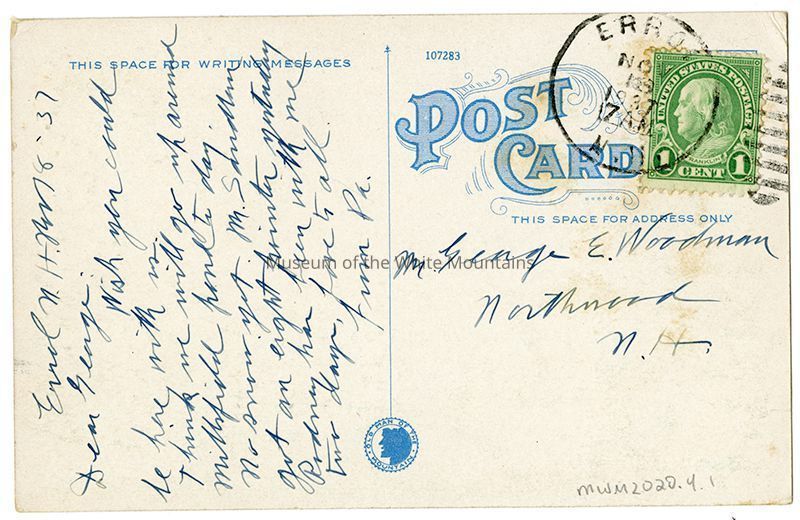 THIS SPACE FOR WRITING MESSAGES
Errol N.H. Nov. 8-37
Dear George:
Wish you could
be here with us.
I think we will go up around
Millsfield pond to day.
No snow yet. M. Sandlin
got an eight pointer yesterday
Rodney has been with me
two days, love to all.
from Pa.
107283
POST CARD
THIS SPACE FOR ADDRESS ONLY
ERRO
NO
1937
7 AM
UNITED STATES POSTAGE
FRANKLIN
1 CENT 1
Mr. George E. Woodman
Northwood
N.H.
Museum of the White Mountains
OLD MAN OF THE MOUNTAIN
MWM2020.4.1